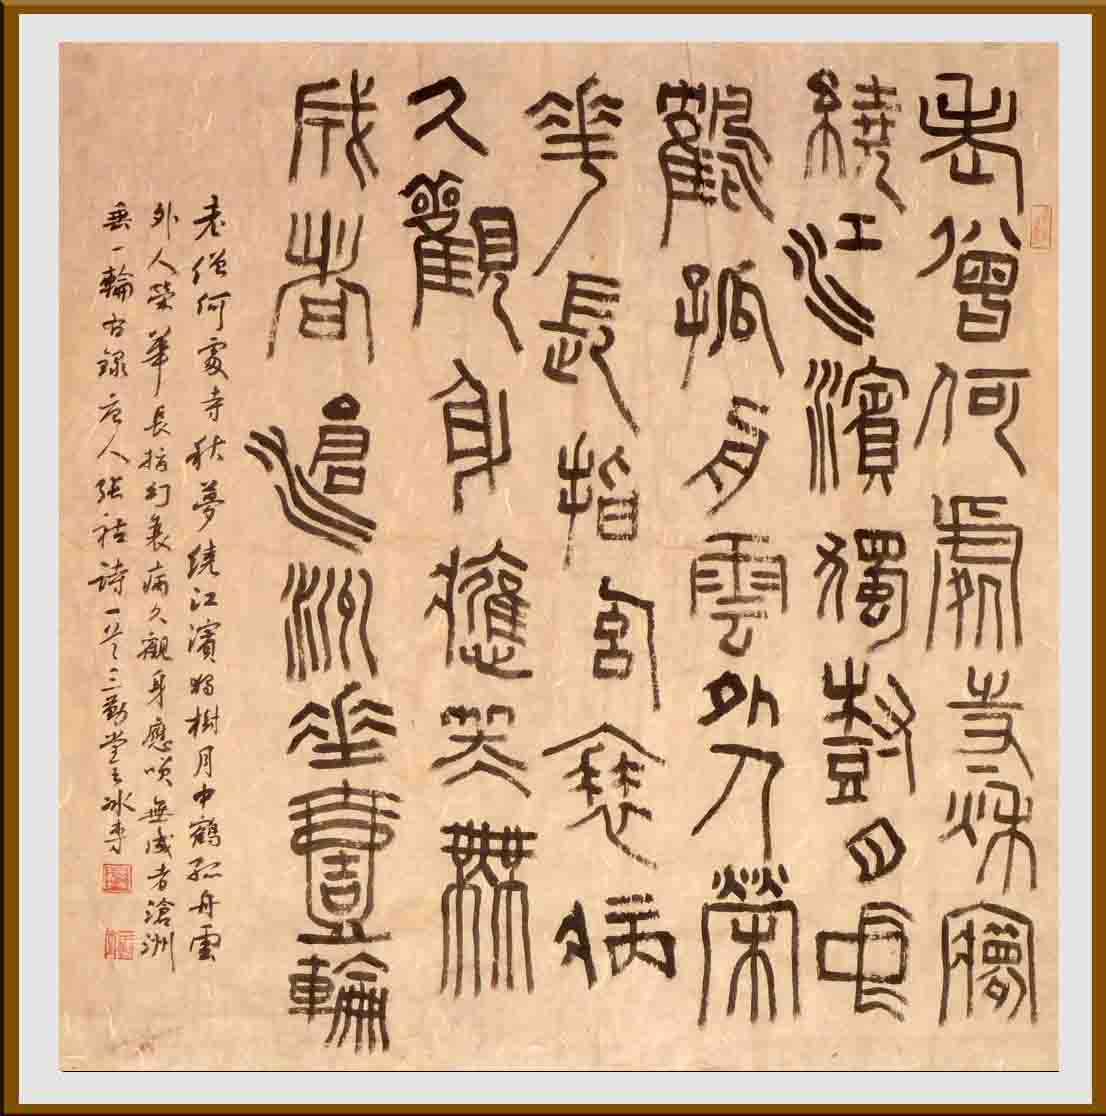 老僧何處寺秋夢
繞江濱獨樹月中
鶴孤舟雲外人榮
華長指幻衰病
久觀身應笑無
成者滄洲垂壹輪
老僧何處寺秋夢繞江濱獨樹月中鶴孤舟雲
外人榮華長指幻衰病久觀身應咲無成者滄洲
垂一輪右錄唐人張祜詩一首三勤堂主冰